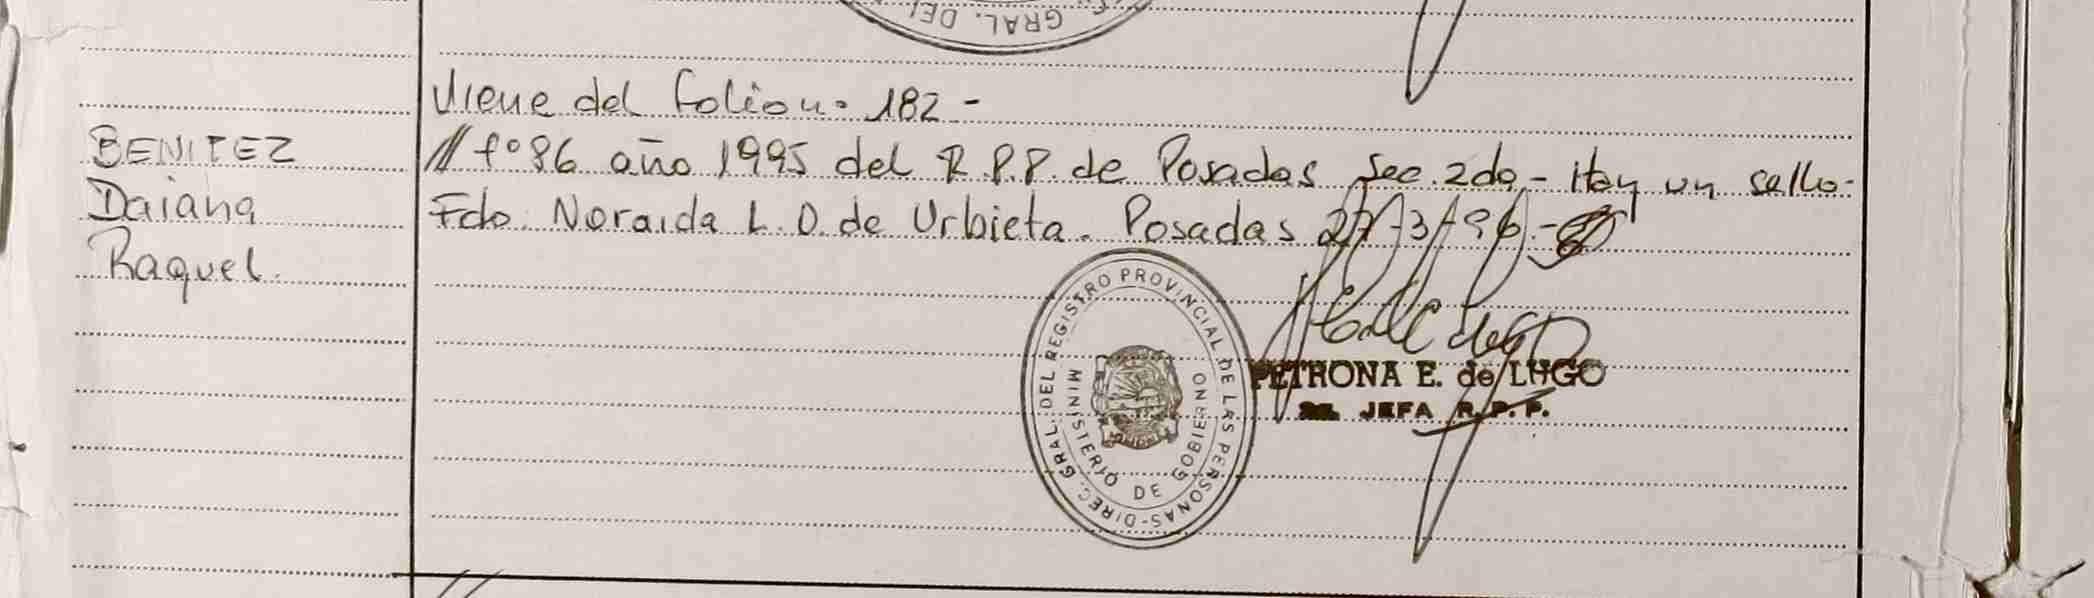 GRAL. DEL
Viene del folio n° 182 -
BENITEZ
Daiana
Raquel.
// f° 86 año 1995 del R.P.P. de Posadas Sec. 2da - Hay un sello.
Fdo. Noraida L. O. de Urbieta. Posadas 27/3/96.-
DIREC. GRAL. DEL REGISTRO PROVINCIAL DE LAS PERSONAS-
MINISTERIO DE GOBIERNO
PETRONA E. de LUGO
JEFA R. P. P.